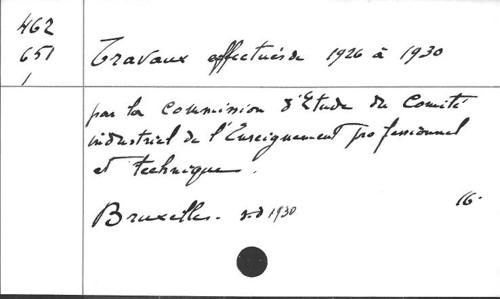 462
651
1
Travaux effectués de 1926 à 1930
par la commission d'Etude du Comité
industriel de l'Enseignement professionnel
et technique.
Bruxelles. s.d 1930
16.